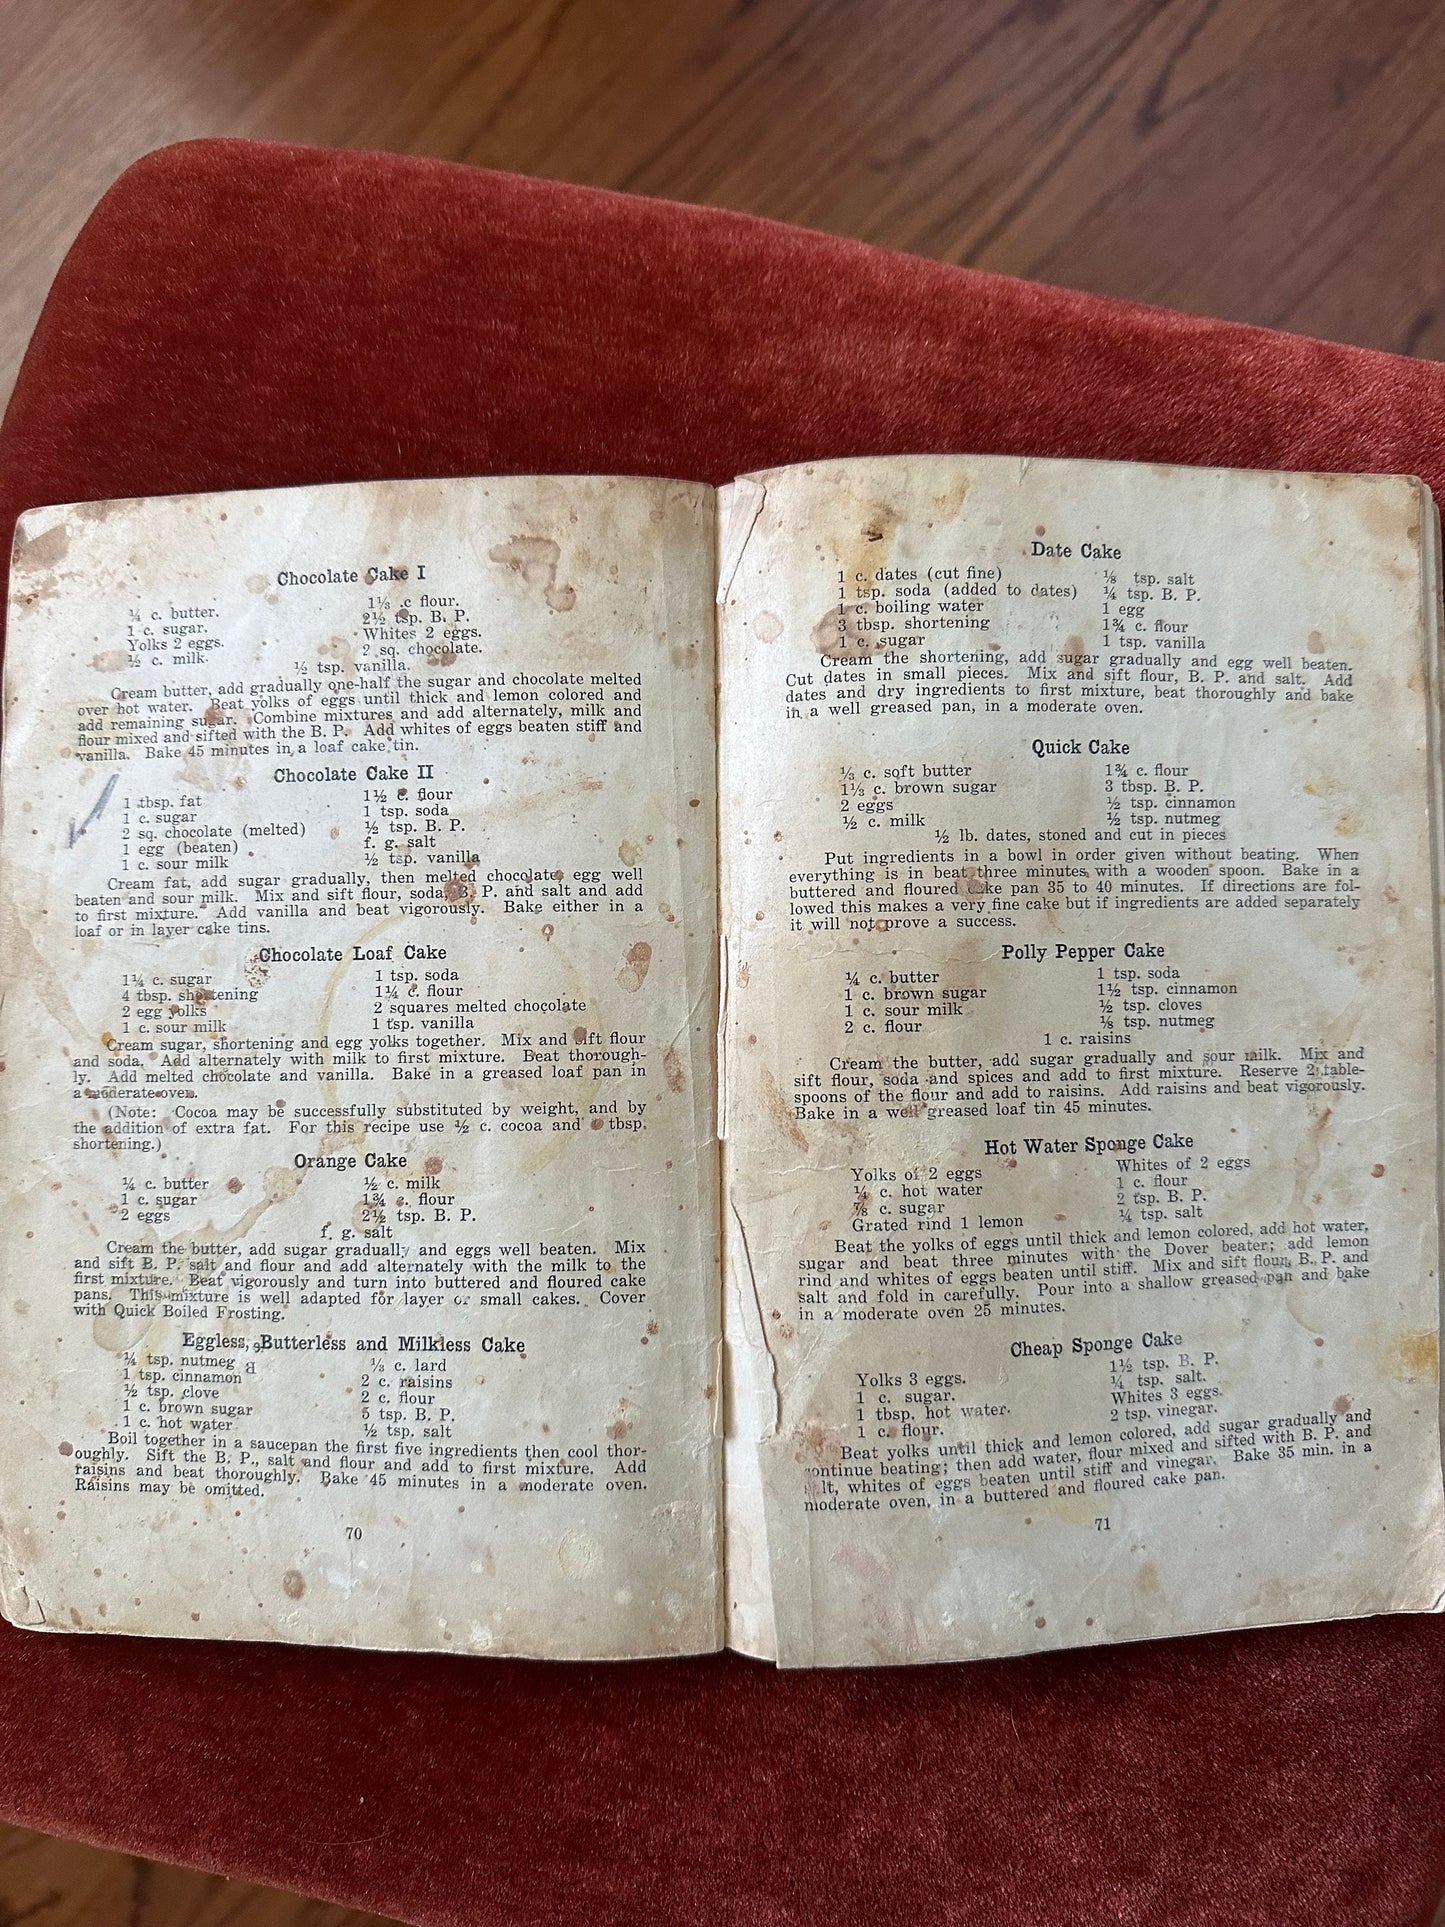 Chocolate Cake I
¼ c. butter.
1 c. sugar.
Yolks 2 eggs.
½ c. milk.
1⅓ .c flour.
2½ tsp. B. P.
Whites 2 eggs.
2 sq. chocolate.
½ tsp. vanilla.
Cream butter, add gradually one-half the sugar and chocolate melted
over hot water. Beat yolks of eggs until thick and lemon colored and
add remaining sugar. Combine mixtures and add alternately, milk and
flour mixed and sifted with the B. P. Add whites of eggs beaten stiff and
vanilla. Bake 45 minutes in a loaf cake tin.
Chocolate Cake II
1 tbsp. fat
1 c. sugar
2 sq. chocolate (melted)
1 egg (beaten)
1 c. sour milk
1½ c. flour
1 tsp. soda
½ tsp. B. P.
f. g. salt
½ tsp. vanilla
Cream fat, add sugar gradually, then melted chocolate, egg well
beaten and sour milk. Mix and sift flour, soda, B. P. and salt and add
to first mixture. Add vanilla and beat vigorously. Bake either in a
loaf or in layer cake tins.
Chocolate Loaf Cake
1¼ c. sugar
4 tbsp. shortening
2 egg yolks
1 c. sour milk
1 tsp. soda
1¼ c. flour
2 squares melted chocolate
1 tsp. vanilla
Cream sugar, shortening and egg yolks together. Mix and sift flour
and soda. Add alternately with milk to first mixture. Beat thorough-
ly. Add melted chocolate and vanilla. Bake in a greased loaf pan in
a moderate oven.
(Note: Cocoa may be successfully substituted by weight, and by
the addition of extra fat. For this recipe use ½ c. cocoa and tbsp.
shortening.)
Orange Cake
¼ c. butter
1 c. sugar
2 eggs
½ c. milk
1¾ c. flour
2½ tsp. B. P.
f. g. salt
Cream the butter, add sugar gradually and eggs well beaten. Mix
and sift B. P. salt and flour and add alternately with the milk to the
first mixture. Beat vigorously and turn into buttered and floured cake
pans. This mixture is well adapted for layer or small cakes. Cover
with Quick Boiled Frosting.
Eggless, Butterless and Milkless Cake
¼ tsp. nutmeg
1 tsp. cinnamon
½ tsp. clove
1 c. brown sugar
1 c. hot water
⅓ c. lard
2 c. raisins
2 c. flour
5 tsp. B. P.
½ tsp. salt
Boil together in a saucepan the first five ingredients then cool thor-
oughly. Sift the B. P., salt and flour and add to first mixture. Add
raisins and beat thoroughly. Bake 45 minutes in a moderate oven.
Raisins may be omitted.
70
Date Cake
1 c. dates (cut fine)
1 tsp. soda (added to dates)
1 c. boiling water
3 tbsp. shortening
1 c. sugar
⅛ tsp. salt
¼ tsp. B. P.
1 egg
1¾ c. flour
1 tsp. vanilla
Cream the shortening, add sugar gradually and egg well beaten.
Cut dates in small pieces. Mix and sift flour, B. P. and salt. Add
dates and dry ingredients to first mixture, beat thoroughly and bake
in a well greased pan, in a moderate oven.
Quick Cake
⅓ c. soft butter
1⅓ c. brown sugar
2 eggs
½ c. milk
1¾ c. flour
3 tbsp. B. P.
½ tsp. cinnamon
½ tsp. nutmeg
½ lb. dates, stoned and cut in pieces
Put ingredients in a bowl in order given without beating. When
everything is in beat three minutes with a wooden spoon. Bake in a
buttered and floured cake pan 35 to 40 minutes. If directions are fol-
lowed this makes a very fine cake but if ingredients are added separately
it will not prove a success.
Polly Pepper Cake
¼ c. butter
1 c. brown sugar
1 c. sour milk
2 c. flour
1 tsp. soda
1½ tsp. cinnamon
½ tsp. cloves
⅛ tsp. nutmeg
1 c. raisins
Cream the butter, add sugar gradually and sour milk. Mix and
sift flour, soda and spices and add to first mixture. Reserve 2 table-
spoons of the flour and add to raisins. Add raisins and beat vigorously.
Bake in a well greased loaf tin 45 minutes.
Hot Water Sponge Cake
Yolks of 2 eggs
¼ c. hot water
⅞ c. sugar
Grated rind 1 lemon
Whites of 2 eggs
1 c. flour
2 tsp. B. P.
¼ tsp. salt
Beat the yolks of eggs until thick and lemon colored, add hot water,
sugar and beat three minutes with the Dover beater; add lemon
rind and whites of eggs beaten until stiff. Mix and sift flour, B. P. and
salt and fold in carefully. Pour into a shallow greased pan and bake
in a moderate oven 25 minutes.
Cheap Sponge Cake
Yolks 3 eggs.
1 c. sugar.
1 tbsp. hot water.
1 c. flour.
1½ tsp. B. P.
¼ tsp. salt.
Whites 3 eggs.
2 tsp. vinegar.
Beat yolks until thick and lemon colored, add sugar gradually and
continue beating; then add water, flour mixed and sifted with B. P. and
salt, whites of eggs beaten until stiff and vinegar. Bake 35 min. in a
moderate oven, in a buttered and floured cake pan.
71